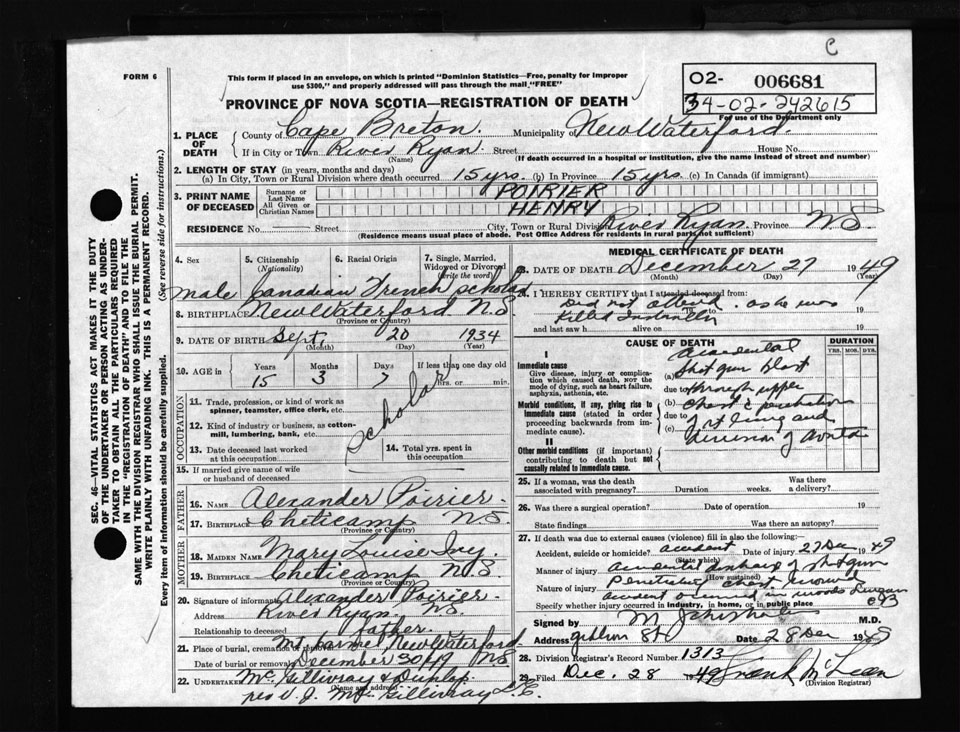 C
FORM 6
This form if placed in an envelope, on which is printed "Dominion Statistics—Free, penalty for improper
use $300," and properly addressed will pass through the mail "FREE"
PROVINCE OF NOVA SCOTIA—REGISTRATION OF DEATH
02- 006681
34-02-242615
For use of the Department only
1. PLACE OF DEATH
County of Cape Breton. Municipality of New Waterford.
If in City or Town River Ryan. Street House No.
(Name) (If death occurred in a hospital or institution, give the name instead of street and number)
2. LENGTH OF STAY (in years, months and days)
(a) In City, Town or Rural Division where death occurred 15 yrs. (b) In Province 15 yrs. (c) In Canada (if immigrant)
3. PRINT NAME OF DECEASED
Surname or Last Name POIRIER
All Given or Christian Names HENRY
RESIDENCE No. Street City, Town or Rural Division River Ryan. Province N.S.
(Residence means usual place of abode. Post Office Address for residents in rural parts not sufficient)
4. Sex 5. Citizenship (Nationality) 6. Racial Origin 7. Single, Married, Widowed or Divorced (Write the word)
male Canadian French scholar
8. BIRTHPLACE New Waterford N.S.
(Province or Country)
9. DATE OF BIRTH Sept, 20 1934
(Month) (Day) (Year)
10. AGE in Years Months Days If less than one day old
15 3 7 hrs. or min.
OCCUPATION
11. Trade, profession, or kind of work as
spinner, teamster, office clerk, etc.
12. Kind of industry or business, as cotton-
mill, lumbering, bank, etc.
scholar
13. Date deceased last worked
at this occupation
14. Total yrs. spent
in this occupation
15. If married give name of wife
or husband of deceased
FATHER
16. NAME Alexander Poirier.
17. BIRTHPLACE Cheticamp N.S.
(Province or Country)
MOTHER
18. MAIDEN NAME Mary Louise
19. BIRTHPLACE Cheticamp N.S
(Province or Country)
20. Signature of informant Alexander Poirier.
Address River Ryan. N.S.
Relationship to deceased father.
21. Place of burial, cremation or removal Mt Carmel New Waterford
Date of burial or removal December 30/49 N.S
22. UNDERTAKER McGillivray & Dunlop
(Name and address)
per V. J. McGillivray L.E.
MEDICAL CERTIFICATE OF DEATH
23. DATE OF DEATH December 27 1949
(Month) (Day) (Year)
24. I HEREBY CERTIFY that I attended deceased from
Did not attend. as he was 19
Killed Instantly 19
and last saw h alive on 19
CAUSE OF DEATH
DURATION
YRS. MOS. DYS.
I
Immediate cause
Give disease, injury or complica-
tion which caused death, NOT the
mode of dying, such as heart failure,
asphyxia, asthenia, etc.
Morbid conditions, if any, giving rise to
immediate cause (stated in order
proceeding backwards from im-
mediate cause).
II
Other morbid conditions (if important)
contributing to death but not
causally related to immediate cause.
Accidental
(a) Shot gun blast
due to through upper
(b) chest
due to of rt lung and
(c) of aorta
25. If a woman, was the death
associated with pregnancy? Duration weeks. Was there
a delivery?
26. Was there a surgical operation? Date of operation 19
State findings Was there an autopsy?
27. If death was due to external causes (violence) fill in also the following:
Accident, suicide or homicide? accident Date of injury 27 Dec 1949
(State which)
Manner of injury accidental discharge of shotgun
(How sustained)
Nature of injury Penetrating chest wound
accident occurred in woods
Specify whether injury occurred in industry, in home, or in public place
Signed by M. M.D.
Address Date 28 Dec 19
28. Division Registrar's Record Number 1313
29. Filed Dec. 28 1949 Frank McLean
(Division Registrar)
SEC. 46—VITAL STATISTICS ACT MAKES IT THE DUTY
OF THE UNDERTAKER OR PERSON ACTING AS UNDER-
TAKER TO OBTAIN ALL THE PARTICULARS REQUIRED
IN THE "REGISTRATION OF DEATH" AND TO FILE THE
SAME WITH THE DIVISION REGISTRAR WHO SHALL ISSUE THE BURIAL PERMIT.
WRITE PLAINLY WITH UNFADING INK. THIS IS A PERMANENT RECORD.
Every item of information should be carefully supplied. (See reverse side for instructions.)